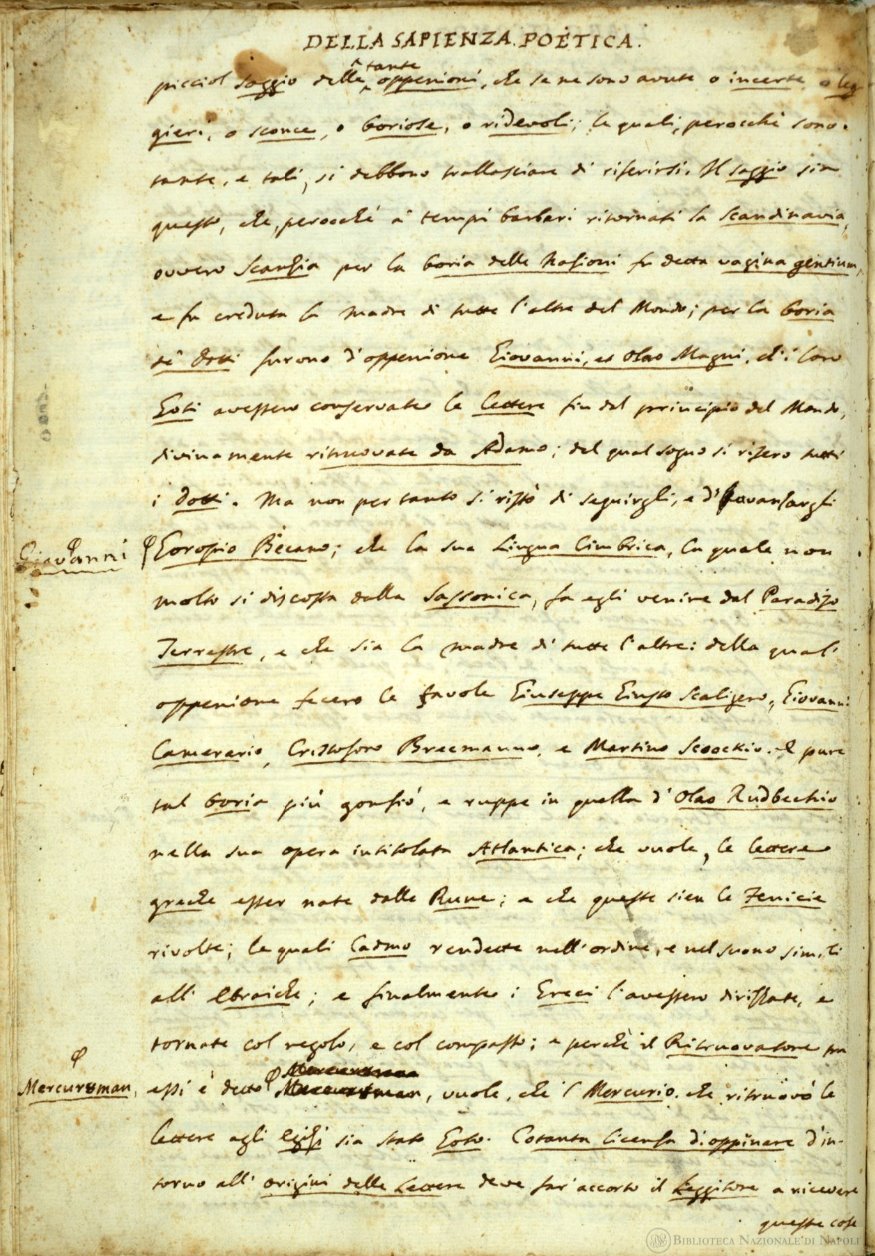 DELLA SAPIENZA POETICA.
tante
picciol saggio delle oppenioni, che se ne sono avute o incerte, o leg-
gieri, o sconce, o boriose, o ridevoli; le quali, perocchè sono
tante, e tali, si debbono trallasciare di riferirsi. Il saggio sia
questo, che, perocchè a' tempi barbari ritornati la Scandinavia,
ovvero Scanzia per la boria delle Nazioni fu detta vagina gentium,
e fu creduta la madre di tutte l'altre del Mondo; per la boria
de' Dotti furono d'oppenione Giovanni, et Olao Magni, ch'i loro
Goti avessero conservate le lettere fin dal principio del Mondo,
divinamente ritruovate da Adamo; del qual sogno si risero tutti
i dotti. Ma non pertanto si ristò di seguirgli, e d'avansargli
Giovanni
Goropio Becano; che la sua lingua Cimbrica, la quale non
molto si discosta dalla Sassonica, fa egli venire dal Paradiso
Terrestre, e che sia la madre di tutte l'altre: della qual'
oppenione fecero le favole Giuseppe Giusto Scaligero, Giovanni
Camerario, Cristoforo Brecmanno, e Martino Scoockio. E pure
tal boria più gonfiò, e ruppe in quella d'Olao Rudbechio
nella sua opera intitolata Atlantica; che vuole, le lettere
greche esser nate dalle Rune; e che queste sien le Fenicie
rivolte; le quali Cadmo rendette nell'ordine, e nel suono simili
all'Ebraiche; e finalmente i Greci l'avessero dirizzate, e
tornate col regolo, e col compasso; e perchè il Ritruovatore tra
Mercurssman,
essi è detto Mercurssman, vuole, che 'l Mercurio, che ritruovò le
lettere agli Egizj sia stato Goto. Cotanta licenza d'oppinare d'in-
torno all'origini delle Lettere deve far'accorto il Leggitore a ricevere
queste cose
BIBLIOTECA NAZIONALE DI NAPOLI